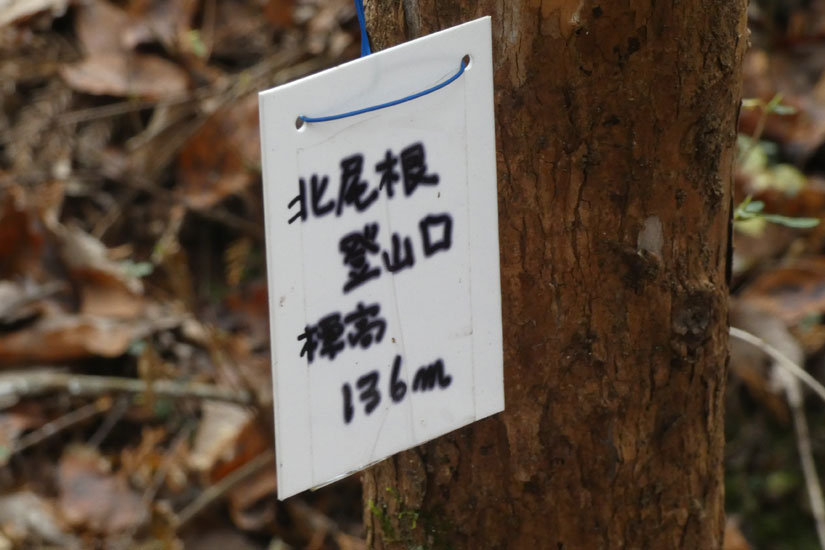 北尾根
登山口
標高
136m